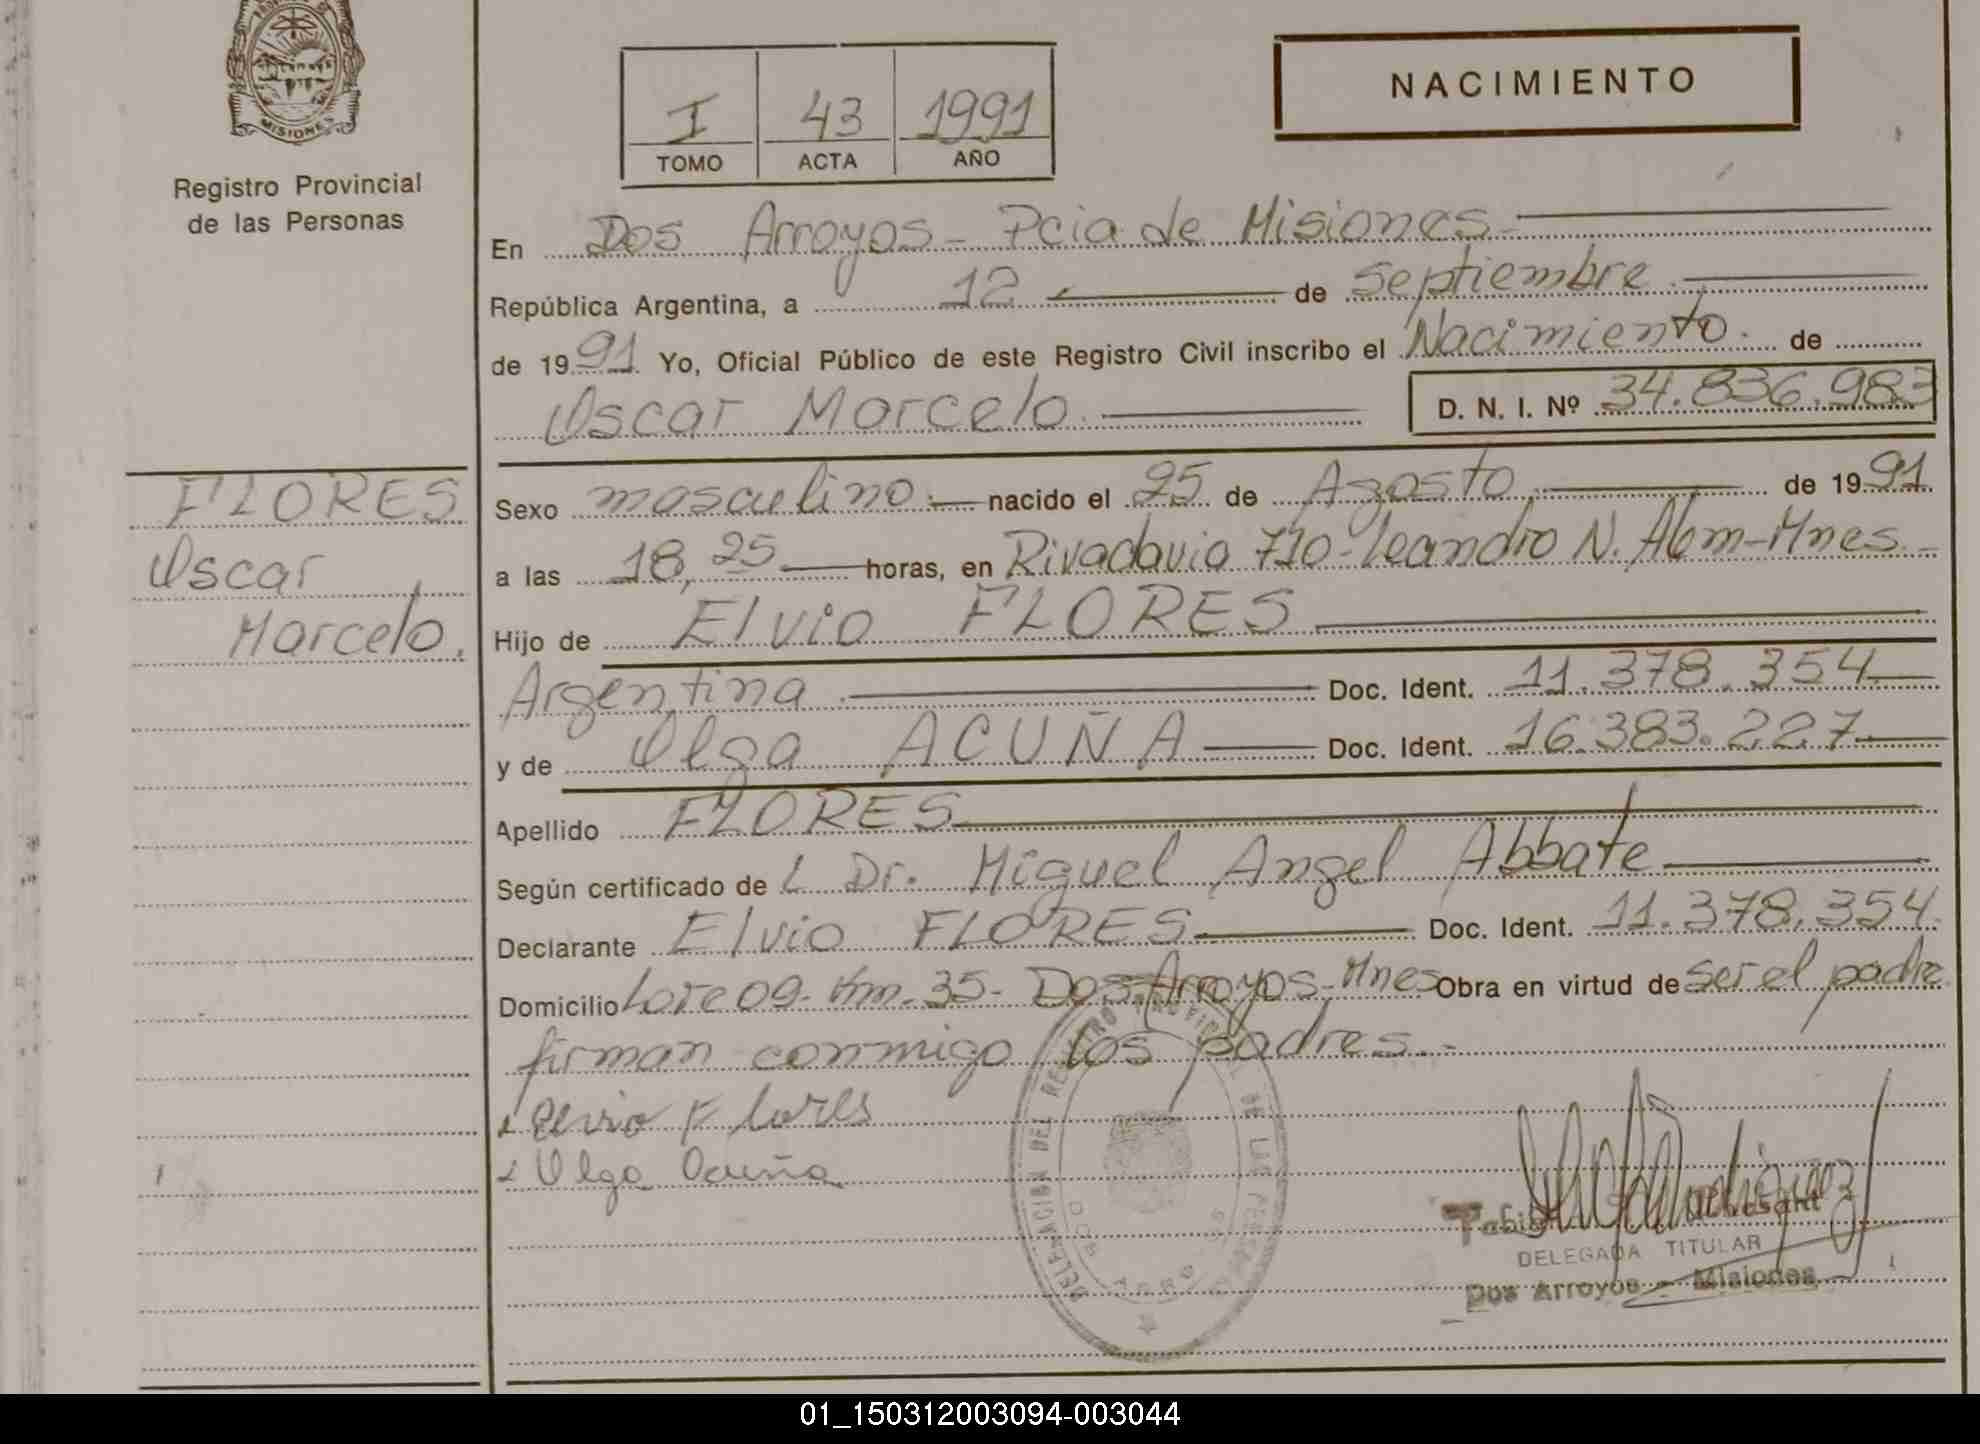 MISIONES
Registro Provincial
de las Personas
I 43 1991
TOMO ACTA AÑO
NACIMIENTO
En Dos Arroyos - Pcia de Misiones
República Argentina, a 12 de septiembre
de 1991 Yo, Oficial Público de este Registro Civil inscribo el Nacimiento de
Oscar Marcelo. D. N. I. Nº 34.836.983
FLORES
Oscar
Marcelo.
Sexo masculino nacido el 25 de Agosto de 1991
a las 18,25 horas, en Rivadavia 710-Leandro N. Alem-Mnes
Hijo de Elvio FLORES
Argentina Doc. Ident. 11.378.354
y de Olga ACUÑA Doc. Ident. 16.383.227
Apellido FLORES
Según certificado de L Dr. Miguel Angel Abbate
Declarante Elvio FLORES Doc. Ident. 11.378.354
Domicilio Lote 09-Km-35-Dos Arroyos-Mnes Obra en virtud de ser el padre
firman conmigo los padres.-
Elvio Flores
Olga Acuña
DELEGACION DEL REGISTRO PROVINCIAL DE LAS PERSONAS
DOS ARROYOS
DELEGADA TITULAR
Dos Arroyos - Misiones
01_150312003094-003044